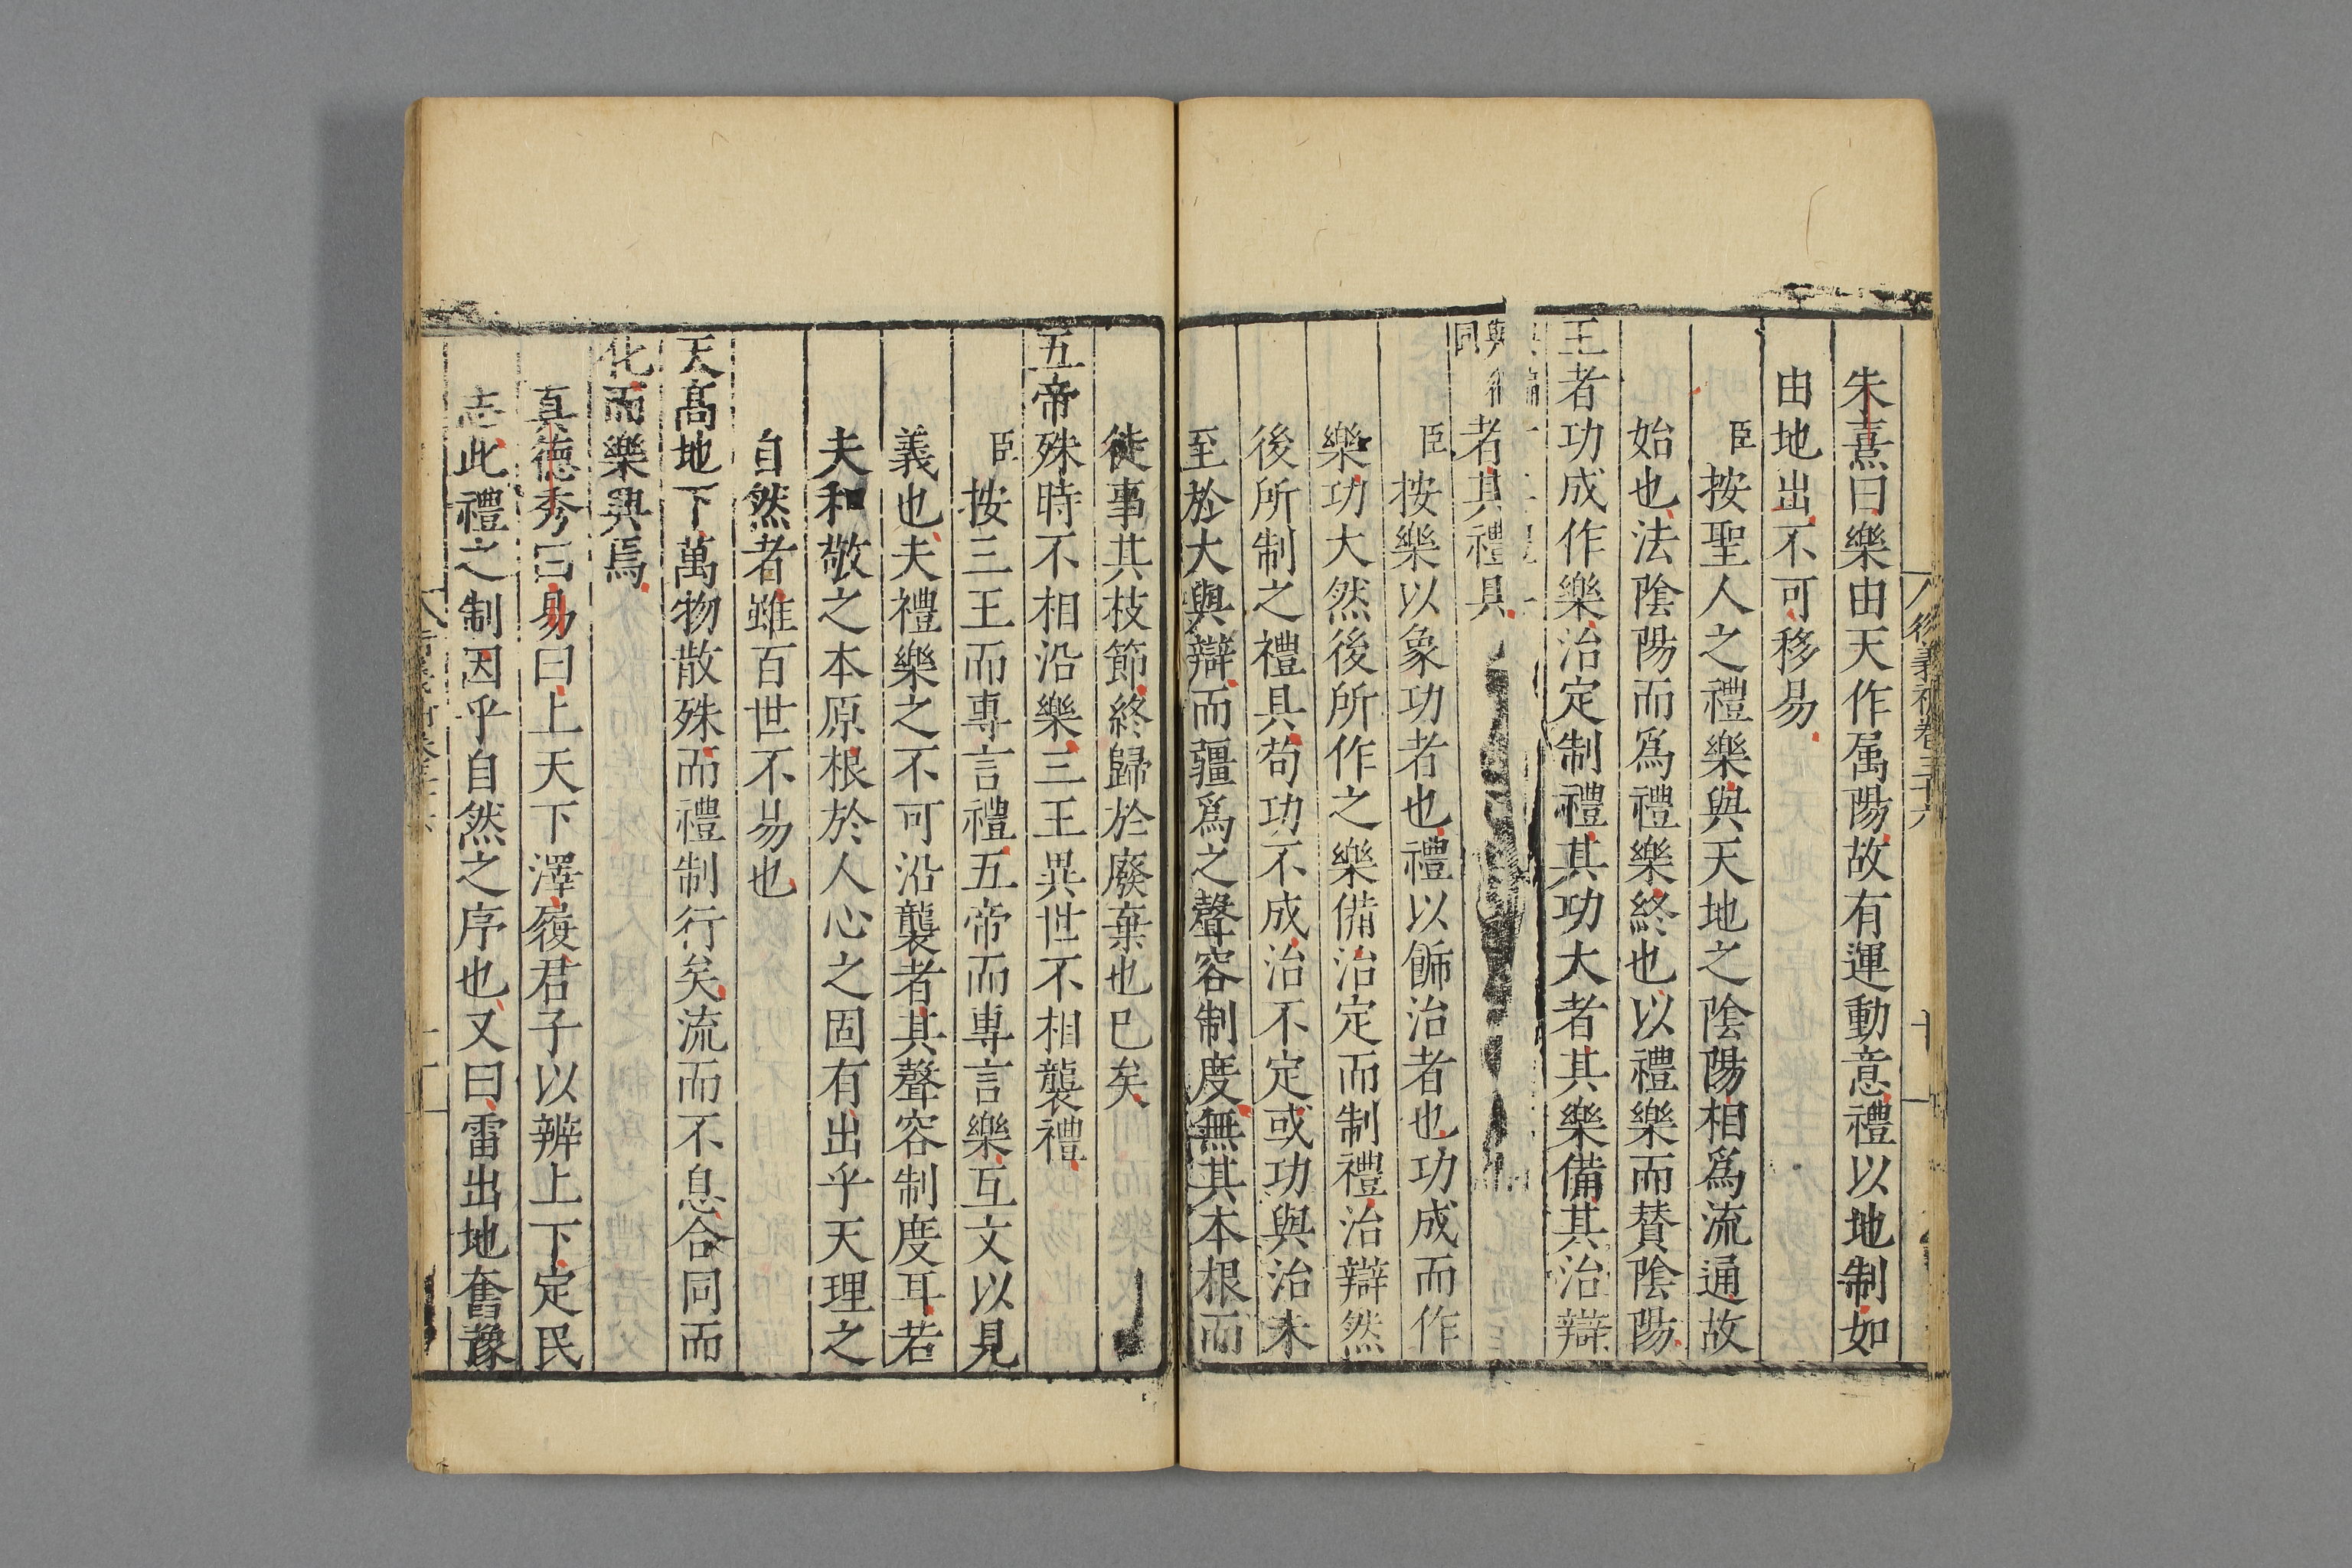 朱熹曰樂由天作属陽故有運動意禮以地制如
由地出不可移易
臣按聖人之禮樂與天地之陰陽相爲流通故
始也法陰陽而爲禮樂終也以禮樂而賛陰陽
王者功成作樂治定制禮其功大者其樂備其治辯
者其禮具
臣按樂以象功者也禮以飾治者也功成而作
樂功大然後所作之樂備治定而制禮治辯然
後所制之禮具茍功不成治不定或功與治未
至於大與辯而疆爲之聲容制度無其本根而
徒事其枝節終歸於廢棄也巳矣
五帝殊時不相沿樂三王異世不相襲禮
臣按三王而專言禮五帝而專言樂互文以見
義也夫禮樂之不可沿襲者其聲容制度耳若
夫和敬之本原根於人心之固有出乎天理之
自然者雖百世不易也
天髙地下萬物散殊而禮制行矣流而不息合同而
化而樂興焉
真德秀曰易曰上天下澤履君子以辨上下定民
志此禮之制因乎自然之序也又曰雷出地奮豫